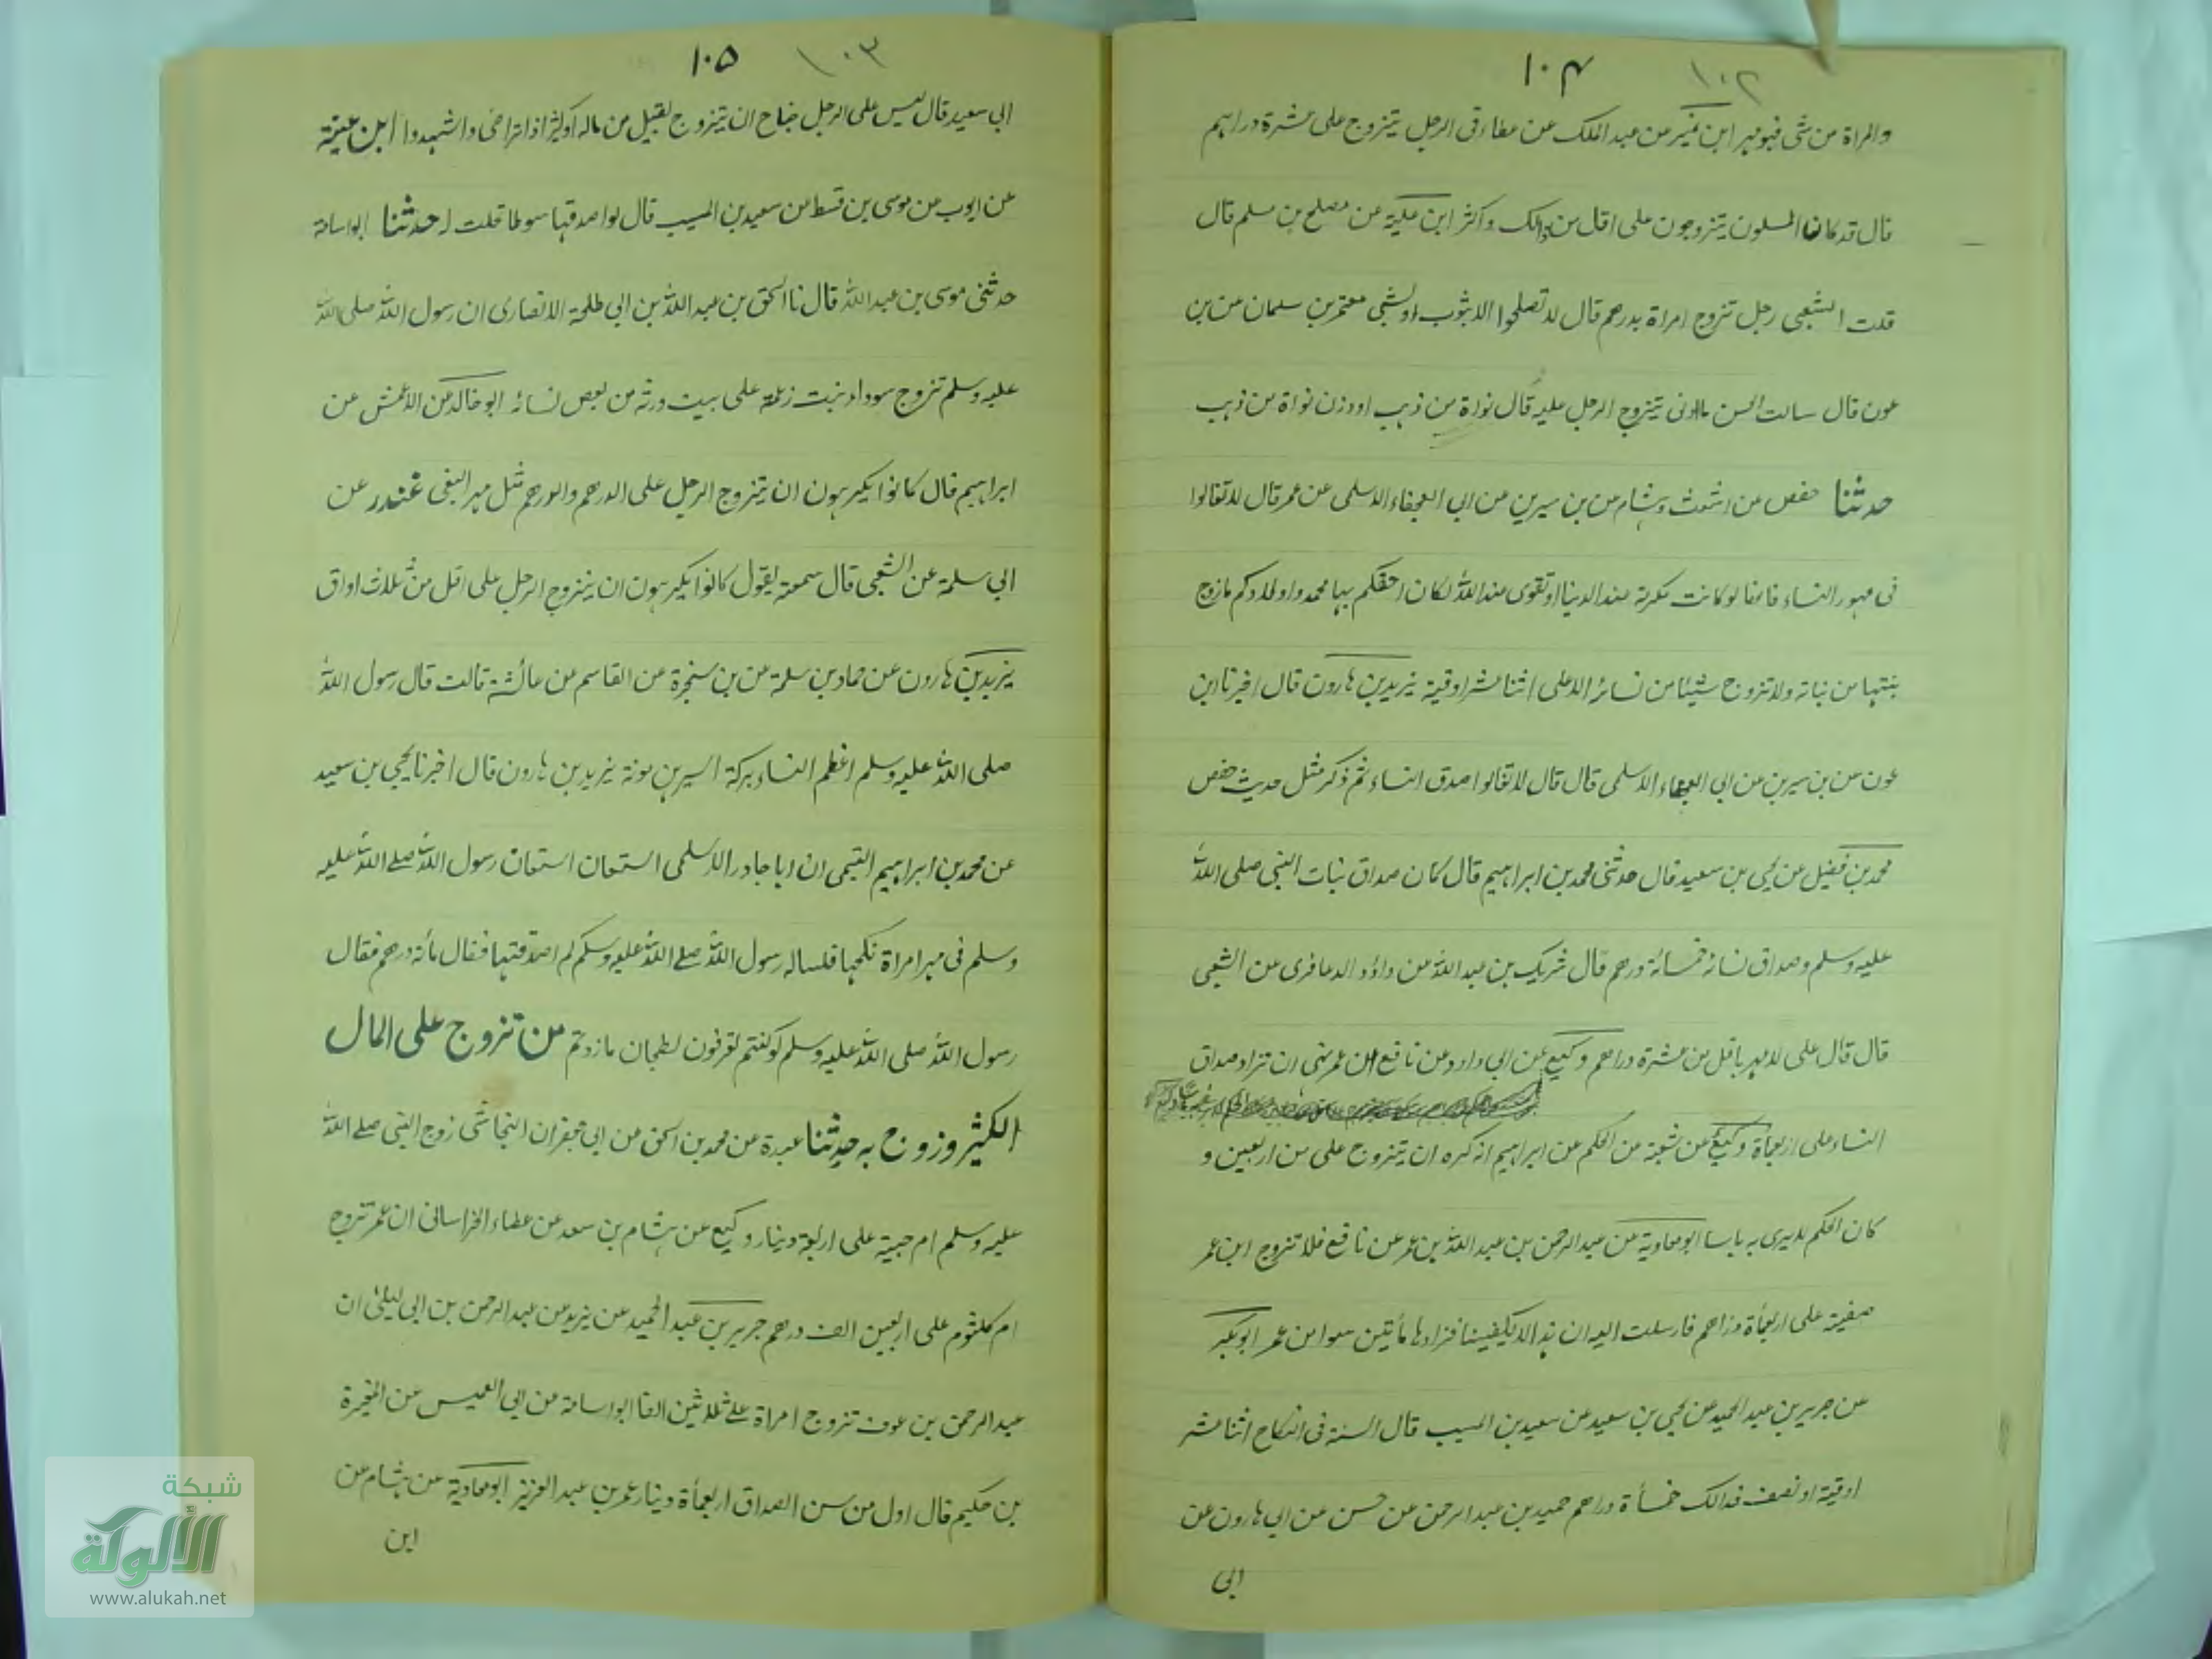 ١٠٢
١٠٤
والمراة من شى فهو مهر ابن نمير عن عبد الملك عن عطاء فى الرجل يتزوج على عشرة دراهم
قال قد كانا المسلمون يتزوجون على اقل من ذالك واكثر ابن علية عن مصلح بن مسلم قال
قلت الشعبى رجل تزوج امراة بدرهم قال لا تصلحوا الا بثوب اوبشى معتمر بن سلمان عن بن
عون قال سالت الحسن ما ادنى يتزوج الرجل عليه قال نواة من ذهب او وزن نواة من ذهب
حدثنا حفص عن اشعث وهشام عن بن سيرين عن ابى العجفاء الاسلمى عن عمر قال لا تغالوا
فى مهور النساء فانها لو كانت مكرمة عند الدنيا او تقوى عند الله لكان احقكم بها محمد واولادكم ما زوج
بنتها من بناته ولا تزوج شيئا من نسائه الا على اثنا عشر اوقية يزيد بن هارون قال اخبرنا ابن
عون عن بن سيرين عن ابى العجفاء الاسلمى قال قال لا تغالوا صدق النساء ثم ذكر مثل حديث حفص
محمد بن فضيل عن يحيى بن سعيد قال حدثنى محمد بن ابراهيم قال كان صداق بنات النبى صلى الله
عليه وسلم وصداق نسائه خمسمائة درهم قال شريك بن عبد الله عن داؤد الدعافرى عن الشعبى
قال قال على لا مهر باقل من عشرة دراهم وكيع عن ابى داود عن نافع ان عمر نهى ان تزاد صداق
النساء على اربعمأة وكيع عن شعبة عن الحكم عن ابراهيم انه كره ان يتزوج على من اربعين و
كان الحكم لا يرى به باسا ابو معاوية عن عبد الرحمن بن عبد الله بن عمر عن نافع فلا تزوج ابن عمر
صفية على اربعمأة دراهم فارسلت اليه ان هذا لا يكفينا فزادها مأتين سوا من عمر ابو بكر
عن جرير بن عبد الحميد عن يحيى بن سعيد عن سعيد بن المسيب قال السنة فى النكاح اثنا عشر
اوقية او نصف فذالك خمسأة دراهم حميد بن عبد الرحمن عن حسن عن ابى هارون عن
ابى
١٠٣
١٠٥
ابى سعيد قال ليس على الرجل جناح ان يتزوج بقليل من ماله او كثير اذا تراضى واشهدوا ابن عينية
عن ايوب عن موسى بن قسط عن سعيد بن المسيب قال لو اصدقها سوطا حلت له حدثنا ابو اسامة
حدثنى موسى بن عبد الله قال نا اسحق بن عبد الله بن ابى طلحة الانصارى ان رسول الله صلى الله
عليه وسلم تزوج سوداء بنت زمعة على بيت ورثه من بعض نسائه ابو خالد عن الاعمش عن
ابراهيم قال كانوا يكرهون ان يتزوج الرجل على الدرهم والدرهم مثل مهر البغى غندر عن
ابى سلمة عن الشعبى قال سمعته يقول كانوا يكرهون ان يتزوج الرجل على اقل من ثلاث اواق
يزيد بن هارون عن حماد بن سلمة عن بن سنجرة عن القاسم عن عائشة قالت قال رسول الله
صلى الله عليه وسلم اعظم النساء بركة ايسرهن مونة يزيد بن هارون قال اخبرنا يحيى بن سعيد
عن محمد بن ابراهيم التيمى ان ابا حادر الاسلمى استعان استعان رسول الله صلى الله عليه
وسلم فى مهر امراة نكحها فساله رسول الله صلى الله عليه وسلم كم اصدقتها فقال مأة درهم فقال
رسول الله صلى الله عليه وسلم لو كنتم تغرفون بطحان ما زدتم من تزوج على المال
الكثير وزوج به حدثنا عبدة عن محمد بن اسحق عن ابى جعفر ان النجاشى زوج النبى صلى الله
عليه وسلم ام حبيبة على اربعة دينار وكيع عن هشام بن سعد عن عطاء الخراسانى ان عمر تزوج
ام كلثوم على اربعين الف درهم جرير بن عبد الحميد عن يزيد عن عبد الرحمن بن ابى ليلى ان
عبد الرحمن بن عوف تزوج امراة على ثلاثين الفا ابو اسامة عن ابى العميس عن المغيرة
بن حكيم قال اول من سن الصداق اربعمأة دينار عمر بن عبد العزيز ابو معاوية عن هشام عن
ابن
شبكة
الألوكة
www.alukah.net